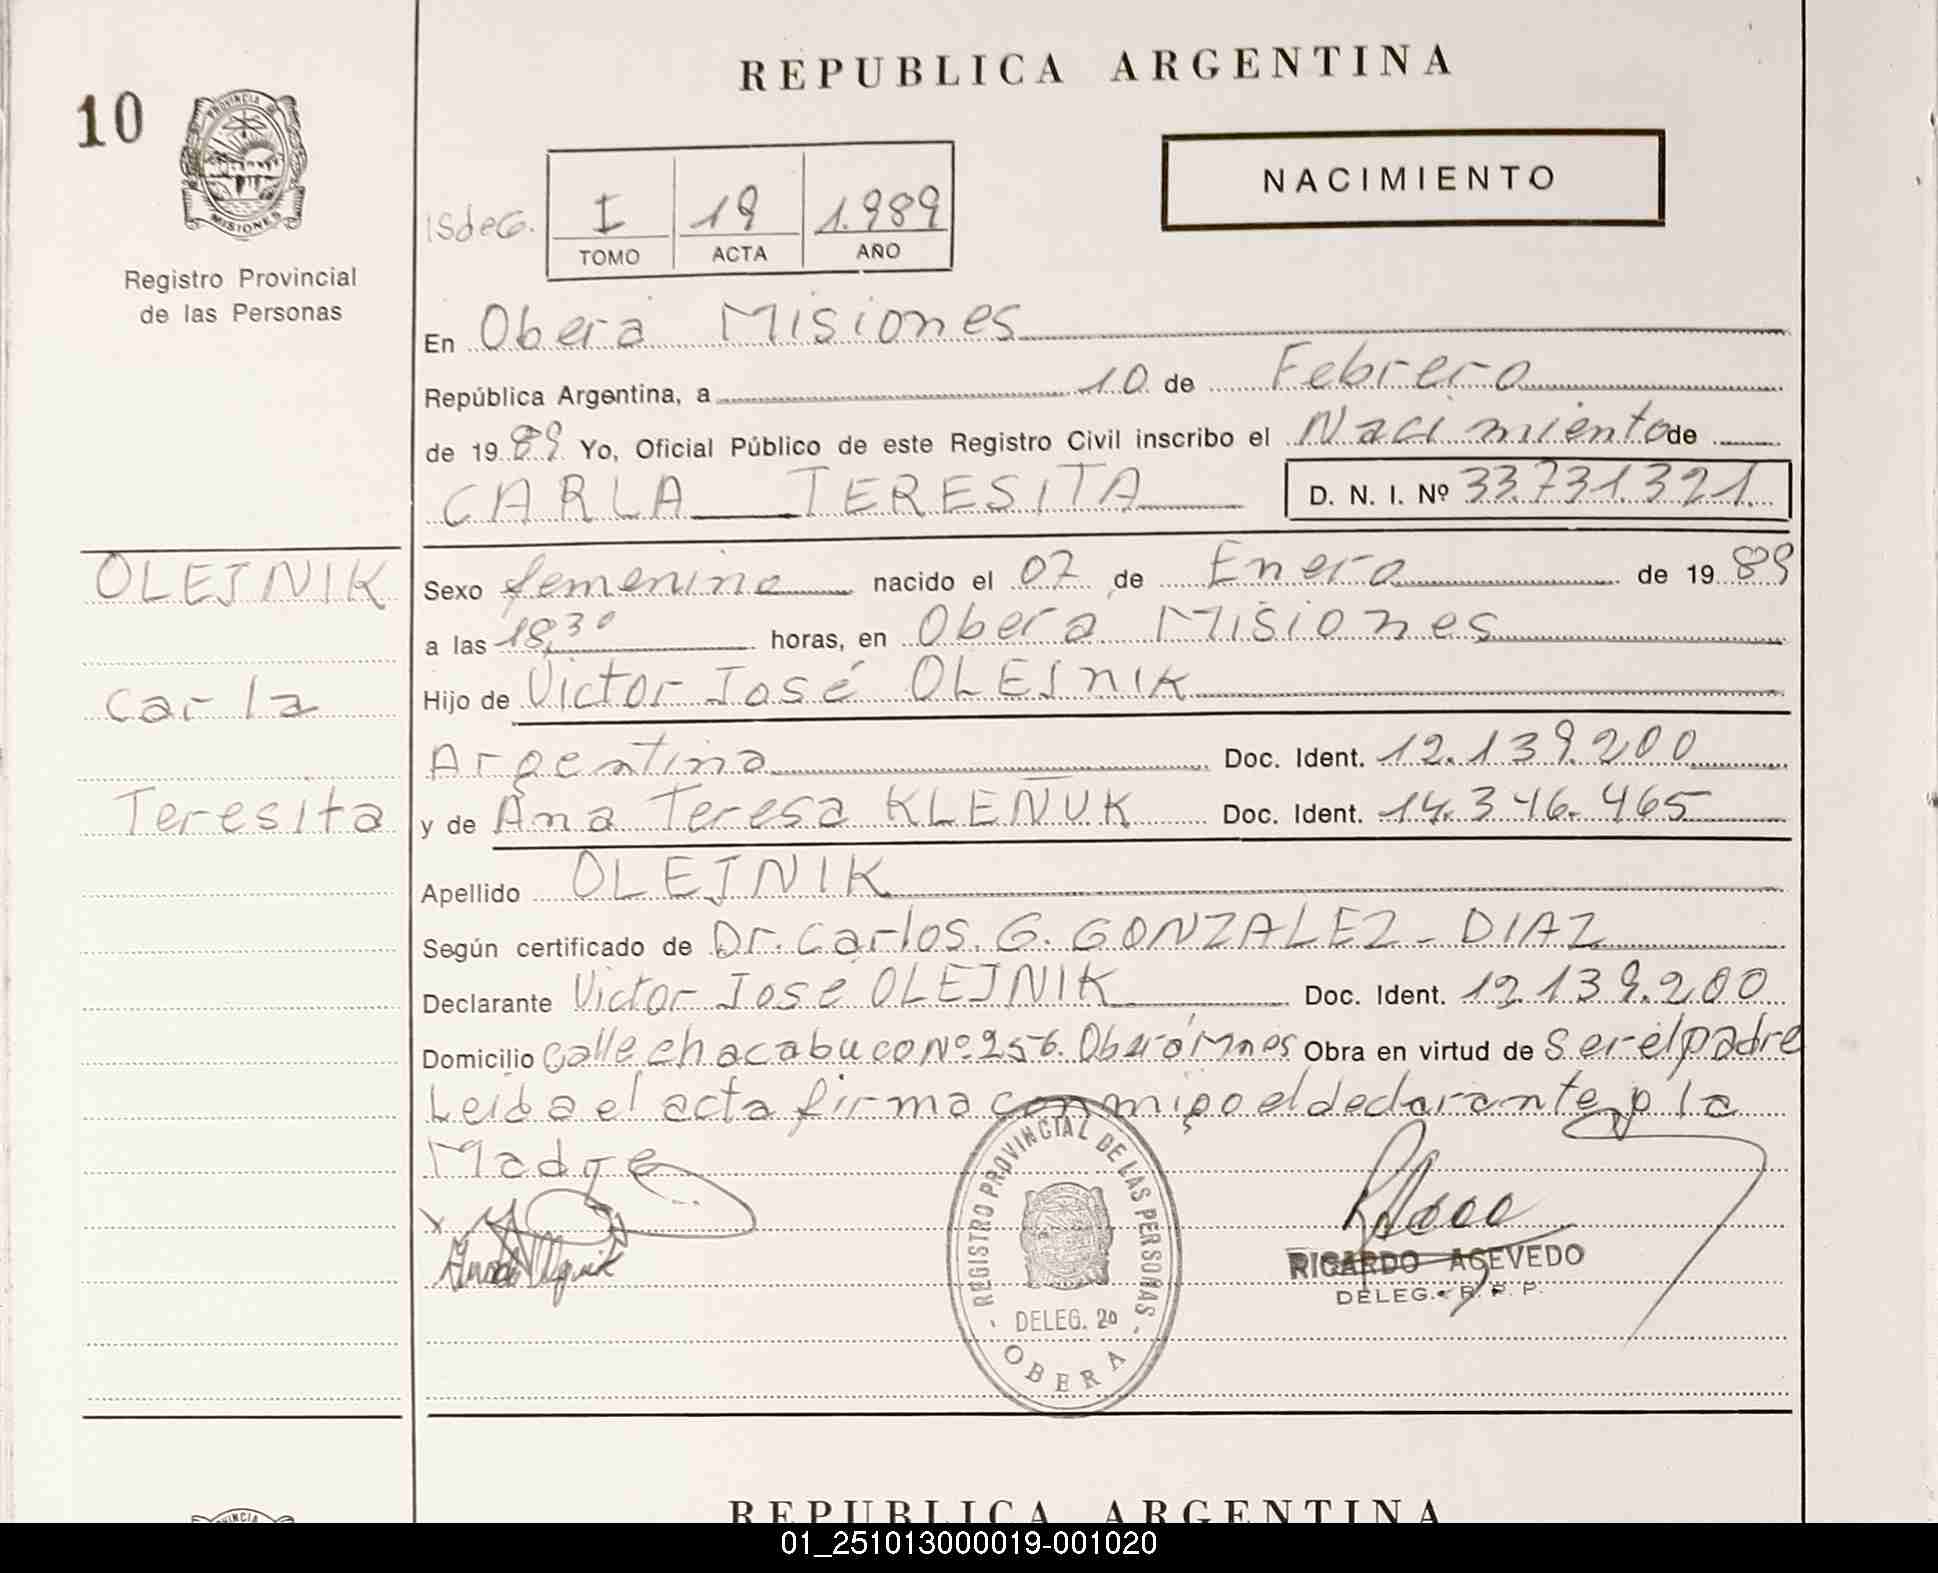 REPUBLICA ARGENTINA
10
PROVINCIA DE MISIONES
Registro Provincial
de las Personas
NACIMIENTO
ISdeG.
I 19 1.989
TOMO ACTA AÑO
En Oberá Misiones
República Argentina, a 10 de Febrero
de 1989 Yo, Oficial Público de este Registro Civil inscribo el Nacimiento de
CARLA TERESITA D. N. I. Nº 33.731321.
OLEJNIK
Carla
Teresita
Sexo femenino nacido el 07 de Enero de 1989
a las 18,30 horas, en Oberá Misiones
Hijo de Victor José OLEJNIK
Argentina Doc. Ident. 12.139.200
y de Ana Teresa KLEÑUK Doc. Ident. 14.346.465
Apellido OLEJNIK
Según certificado de Dr. Carlos. G. GONZALEZ - DIAZ
Declarante Victor José OLEJNIK Doc. Ident. 12.139.200
Domicilio Calle chacabuco Nº 256. Oberá Mnes Obra en virtud de ser el padre
Leida el acta firma conmigo el declarante y la
Madre
REGISTRO PROVINCIAL DE LAS PERSONAS
DELEG. 20
OBERA
RICARDO ACEVEDO
DELEG. R. P. P.
PROVINCIA
REPUBLICA ARGENTINA
01_251013000019-001020